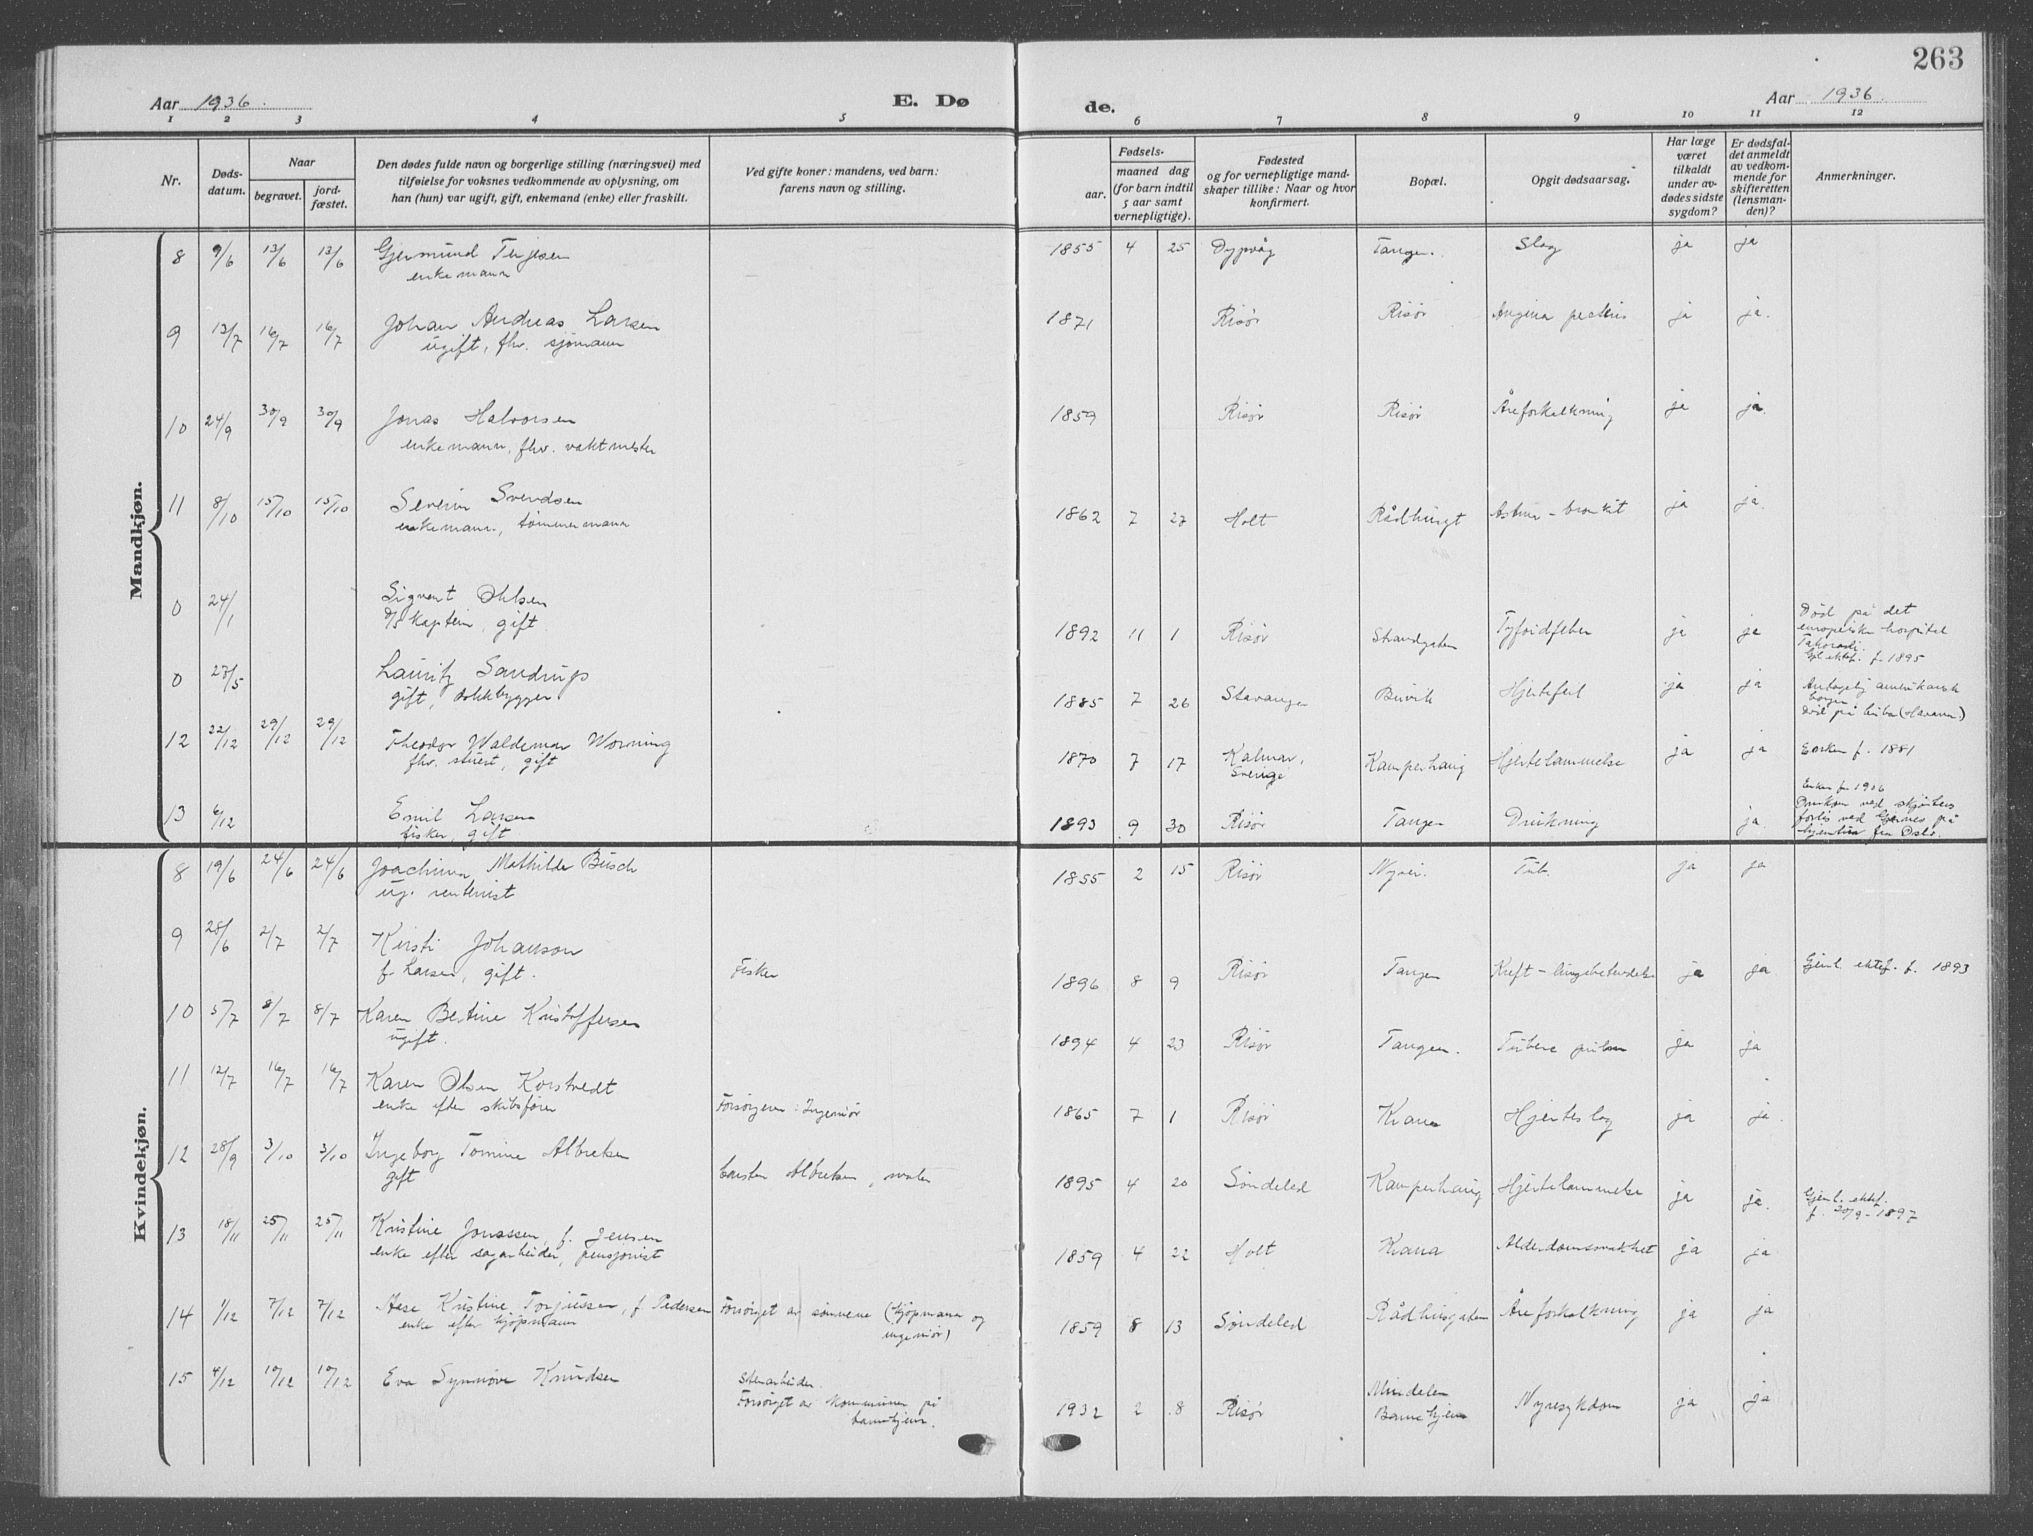 263
Aar 1936.
E. Dø
de.
Aar 1936.
1 2 3 4 5 6 7 8 9 10 11 12
Nr.
Døds-
datum.
Naar
begravet.
jord-
fæstet.
Den dødes fulde navn og borgerlige stilling (næringsvei) med
tilføielse for voksnes vedkommende av oplysning, om
han (hun) var ugift, gift, enkemand (enke) eller fraskilt.
Ved gifte koner: mandens, ved barn:
farens navn og stilling.
Fødsels-
aar.
maaned dag
(for barn indtil
5 aar samt
vernepligtige).
Fødested
og for vernepligtige mand-
skaper tillike: Naar og hvor
konfirmert.
Bopæl.
Opgit dødsaarsag.
Har læge
været
tilkaldt
under av-
dødes sidste
sygdom?
Er dødsfal-
det anmeldt
av vedkom-
mende for
skifteretten
(lensman-
den)?
Anmerkninger.
Mandkjøn.
8 9/6 13/6 13/6 Gjermund Terjesen 1855 4 25 Dypvåg Tangen. Slag ja ja
enkemann
9 13/7 16/7 16/7 Johan Andreas Larsen 1871 Risør Risør Angina pectoris ja ja.
ugift, fhv. sjømann
10 24/9 30/9 30/9 Jonas Halvorsen 1859 Risør Risør Åreforkalkning ja ja.
enkemann, fhv. vaktmester
11 8/10 15/10 15/10 Severin Svendsen 1862 7 27 Holt Rådhusgt Astma-bronkit ja ja.
enkemann, tømmermann
0 24/1 Sigvart Ohlsen 1892 11 1 Risør Strandgaten Tyfoidfeber ja ja
D/S kaptein, gift.
Død på det
europeiske hospital
Takoradi.
Gjl. ektef. f. 1895
0 27/5 Lauritz Sandrup 1885 7 26 Stavanger Buvik Hjertefeil ja ja
gift, dokkbygger
Antagelig amerikansk
borger
Død på Cuba (Havanna)
12 22/12 29/12 29/12 Theodor Waldemar Worning 1870 7 17 Kalmar, Kamperhaug Hjertelammelse ja ja Enken f. 1881
fhv. stuert, gift Sverige
13 6/12 Emil Larsen 1893 9 30 Risør Tangen Drukning ja.
fisker, gift
Enken f. 1906
Druknet ved skjøitens
forlis ved Gjernes på
hjemtur fra Oslo.
Kvindekjøn.
8 19/6 24/6 24/6 Joachima Mathilde Busch 1855 2 15 Risør Nyvei. Tub. ja ja
ug. rentenist
9 28/6 2/7 2/7 Kirsti Johanson 1896 8 9 Risør Tangen Kreft - lungebetendelse ja ja Gjenl. ektef. f. 1893
f. Larsen, gift. Fisker
10 5/7 8/7 8/7 Karen Bertine Kristoffersen 1894 4 23 Risør Tangen. Tuberc pulm ja ja
ugift.
11 12/7 16/7 16/7 Karen Olsen Korstvedt 1865 7 1 Risør Krana Hjerteslag ja ja.
enke efter skibsfører Forsørgeren: Ingeniør
12 28/9 3/10 3/10 Ingeborg Tomine Albretsen 1895 4 20 Søndeled Kamperhaug Hjertelammelse ja ja.
gift Carsten Albretsen, maler
Gjenl. ektef.
f. 30/9-1897
13 18/11 25/11 25/11 Kristine Jonassen, f. Jensen 1859 4 22 Holt Krana Alderdomssvakhet ja ja
enke efter sagarbeider, pensjonist
14 1/12 7/12 7/12 Aase Kristine Torjussen, f. Pedersen 1859 8 13 Søndeled Rådhusgaten Åreforkalkning ja ja
enke efter kjøpmann Forsørget av sønnene (kjøpmann og
ingeniør)
15 4/12 10/12 10/12 Eva Synnøve Knudsen 1932 2 8 Risør Nyresykdom ja ja
Stenarbeider.
Forsørget av kommunen på
barnehjem.
Barnehjem